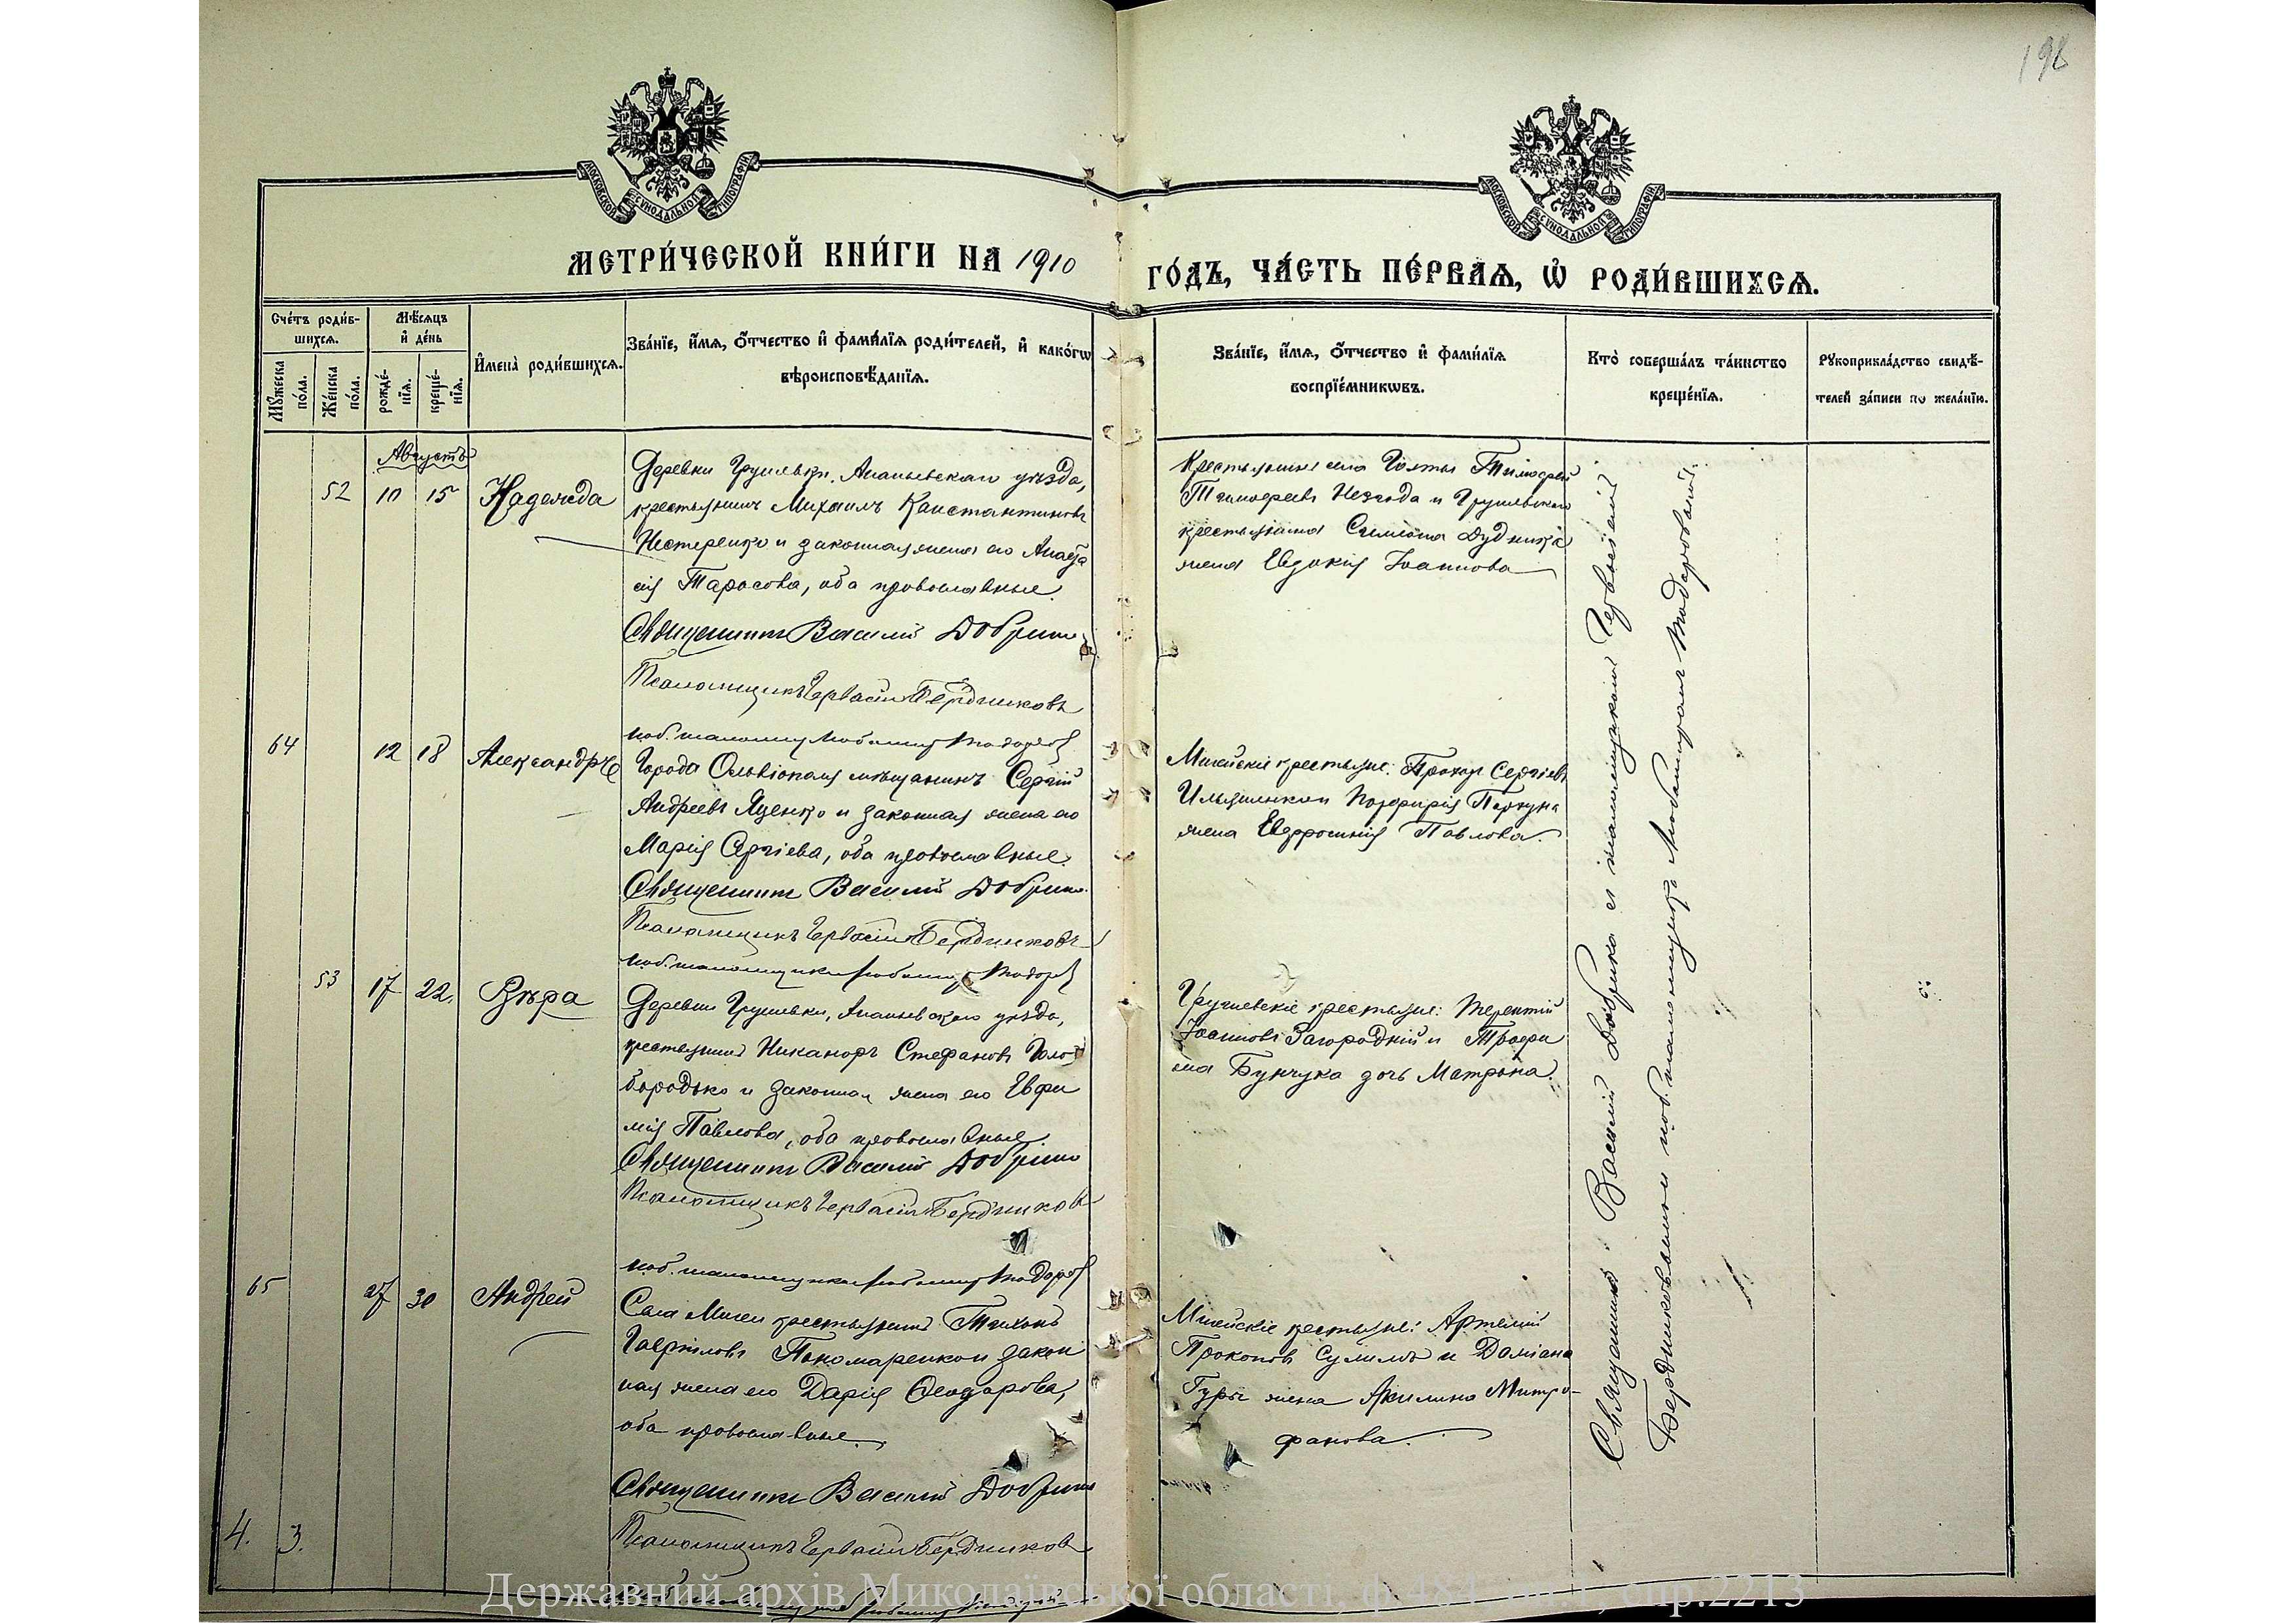 198
МОСКОВСКОЙ СѴНОДАЛЬНОЙ ТИПОГРАФІИ
МОСКОВСКОЙ СѴНОДАЛЬНОЙ ТИПОГРАФІИ
МЕТРИ́ЧЕСКОЙ КНИ́ГИ НА 1910
ГО́ДЪ, ЧА́СТЬ ПЕ́РВАѦ, Ѡ РОДИ́ВШИХСѦ.
Сче́тъ роди́в-
шихсѧ.
Мꙋ́жеска по́ла.
Же́нска по́ла.
Мѣ́сѧцъ
и де́нь
рожде́-
нїѧ.
креще́-
нїѧ.
Имена̀ роди́вшихсѧ.
Зва́нїе, и́мѧ, ѻ́тчество и фами́лїѧ роди́телей, и како́гѡ
вѣроисповѣ́данїѧ.
Зва́нїе, и́мѧ, ѻ́тчество и фами́лїѧ
воспрїе́мникѡвъ.
Кто̀ соверша́лъ та́инство
креще́нїѧ.
Рꙋкоприкла́дство свидѣ́-
телей за́писи по жела́нїю.
Августъ
52 10 15 Надежда
Деревни Грушевки, Ананьевскаго уѣзда,
крестьянинъ Михаилъ Константиновъ
Нестеренко и законная жена его Анаста
сія Тарасова, оба православные.
Священникъ Василій Добрин
Псаломщикъ Гервасій Бердниковъ
Крестьянинъ села Голты Тимофей
Тимофеевъ Незгода и Грушевскаго
крестьянина Симеона Дудника
жена Евдокія Іоаннова
64 12 18 Александръ
Города Ольвіополя мѣщанинъ Сергій
Андреевъ Яценко и законная жена его
Марія Сергіева, оба православные.
Священникъ Василій Добрин
Псаломщикъ Гервасій Бердниковъ
Мигейскіе крестьяне: Прохоръ Сергіевъ
Порфирія Перкуна
жена Евфросинія Павлова.
53 17 22. Вѣра
Деревни Грушевки, Ананьевскаго уѣзда,
крестьянинъ Никаноръ Стефановъ Голо
бородько и законная жена его Евфи
мія Павлова, оба православные.
Священникъ Василій Добрин
Псаломщикъ Гервасій Бердников
Грушевскіе крестьяне: Терентій
Іоанновъ Загородній и Трофи
ма Бунчука дочь Матрона.
65 27 30 Андрей
Села Мигеи крестьянинъ Тихонъ
Гавріиловъ Пономаренко и закон
ная жена его Дарія Феодорова,
оба православные.
Священникъ Василій Добрин
Псаломщикъ Гервасій Бердников
Мигейскіе крестьяне: Артемій
Прокоповъ Сулима и Даміана
Гуры жена Акилина Митро-
фанова.
4. 3.
Священникъ Василій Добрин съ псаломщикомъ Гервасіемъ
Бердниковымъ и
Державний архів Миколаївської області, ф.484, оп.1, спр.2213